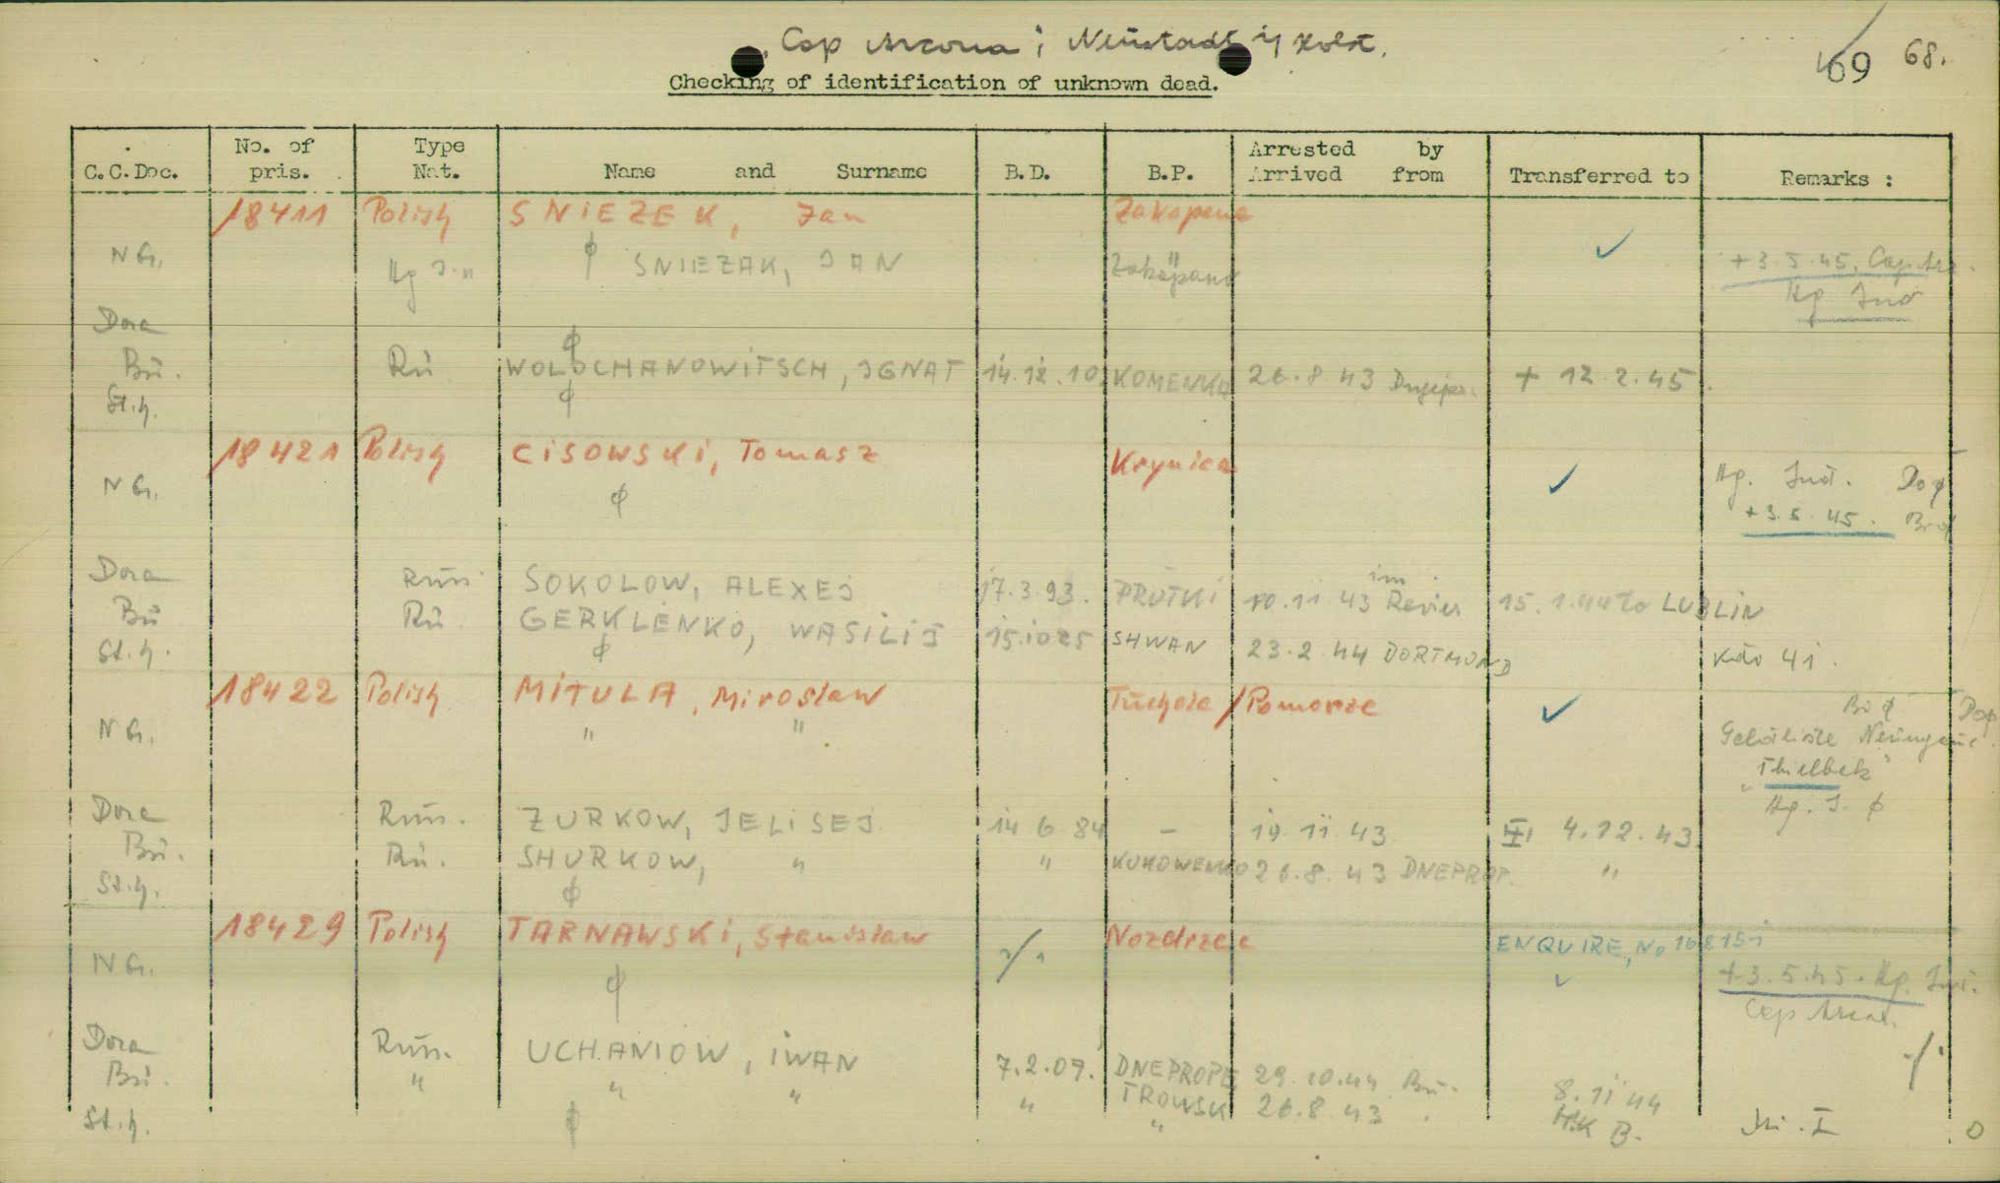 Cap Arcona; Neustadt i/ Holst.
69 68.
Checking of identification of unknown dead.
C.C.Doc. No. of pris. Type Nat. Name and Surname B.D. B.P. Arrested by Arrived from Transferred to Remarks :
18411 Polish SNIEZEK, Jan Zakopane
NG. Hg J.n ϕ SNIEZAK, JAN Zakopane ✓ +3.5.45. Cap Arc.
Hg Ind
Dora ϕ
Bu. Ru WOLOCHANOWITSCH, IGNAT 14.12.10. KOMENKA 26.8 43 + 12.2.45.
St.h. ϕ
18421 Polish CISOWSKI, Tomasz Krynica
NG. ϕ ✓ Hg. Ind. Do ϕ
+3.5.45. Bu ϕ
Dora Rus. SOKOLOW, ALEXEJ 17.3.93. PRUTKI 10.11 43 im Revier 15.1.44 to LUBLIN
Bu Ru. GERKLENKO, WASILIJ 15.10 25 SHWAN 23.2.44 DORTMUND Kdo 41.
St.h. ϕ
18422 Polish MITULA, Miroslaw Tuchola / Pomorze
NG. " " ✓ Bu ϕ Do ϕ
"Thielbek"
Hg. J. ϕ
Dora Rus. ZURKOW, JELISEJ 14 6 84 – 19.11.43 III 4.12.43
Bu. Ru. SHURKOW, " " KUKOWENKO 26.8.43 DNEPROP. "
St.h. ϕ
18429 Polish TARNAWSKI, Stanislaw ./. Nozdrzec ENQUIRE, No
NG. ϕ ✓ +3.5.45. Hg. Ind.
Cap Arcon.
Dora Rus. UCHANIOW, IWAN 7.2.09. DNEPROPE 29.10.44 Bu. 8.11 44 ./.
Bu. " " " " TROWSK 26.8.43
St.h. ϕ "